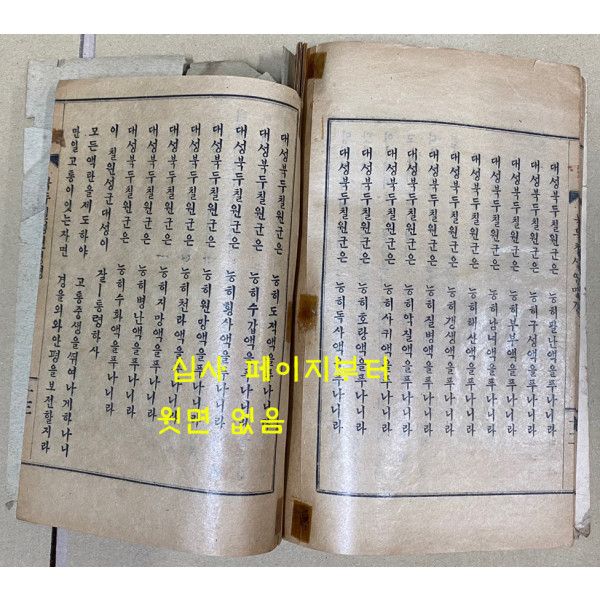 대성북두칠원군은 능히팔난액을푸나니라
대성북두칠원군은 능히구성액을푸나니라
대성북두칠원군은 능히부부액을푸나니라
대성북두칠원군은 능히남녀액을푸나니라
대성북두칠원군은 능히해산액을푸나니라
대성북두칠원군은 능히갱생액을푸나니라
대성북두칠원군은 능히질병액을푸나니라
대성북두칠원군은 능히악질액을푸나니라
대성북두칠원군은 능히사귀액을푸나니라
대성북두칠원군은 능히호랑액을푸나니라
대성북두칠원군은 능히독사액을푸나니라
대성북두칠원군은 능히도적액을푸나니라
대성북두칠원군은 능히수감액을푸나니라
대성북두칠원군은 능히횡사액을푸나니라
대성북두칠원군은 능히원망액을푸나니라
대성북두칠원군은 능히천라액을푸나니라
대성북두칠원군은 능히지망액을푸나니라
대성북두칠원군은 능히병난액을푸나니라
대성북두칠원군은 능히수화액을푸나니라
이 칠원성군대성이 잘ㅡ통령하사
모든액란을제도하야 고통중생을뛰여나게하나니
만일고통이잇는자면 경을외와안평을보전할지라
심사 페이지부터
윗면 없음